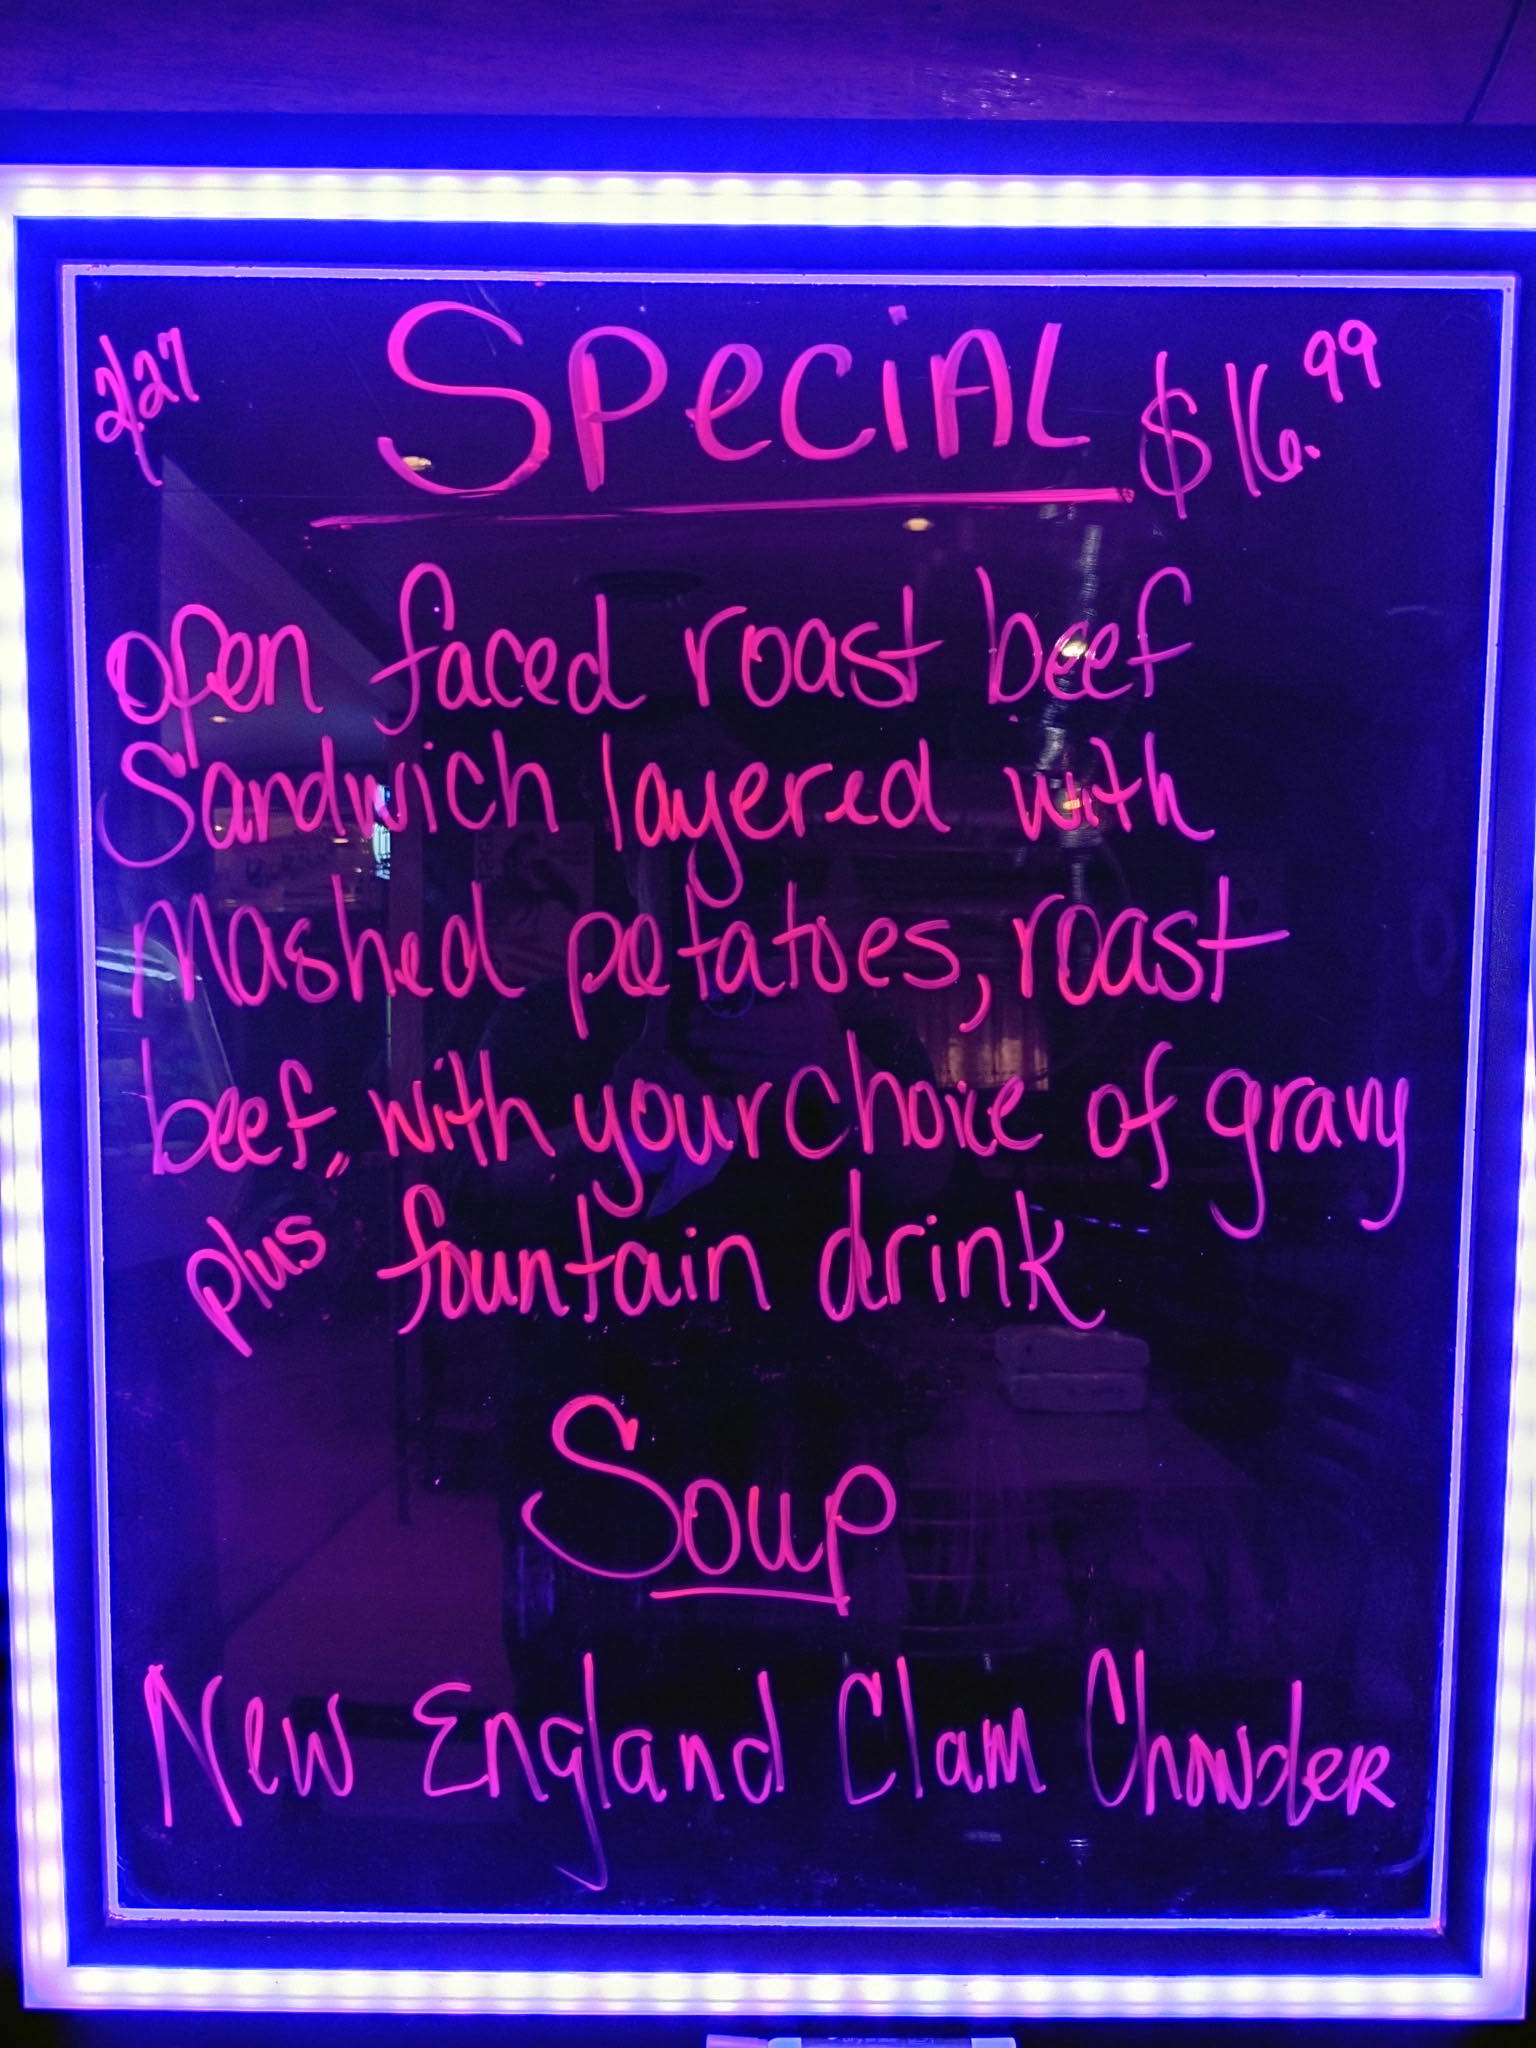 2/27 Special $16.99
open faced roast beef
Sandwich layered with
Mashed potatoes, roast
beef, with your choice of gravy
plus fountain drink
Soup
New England Clam Chowder